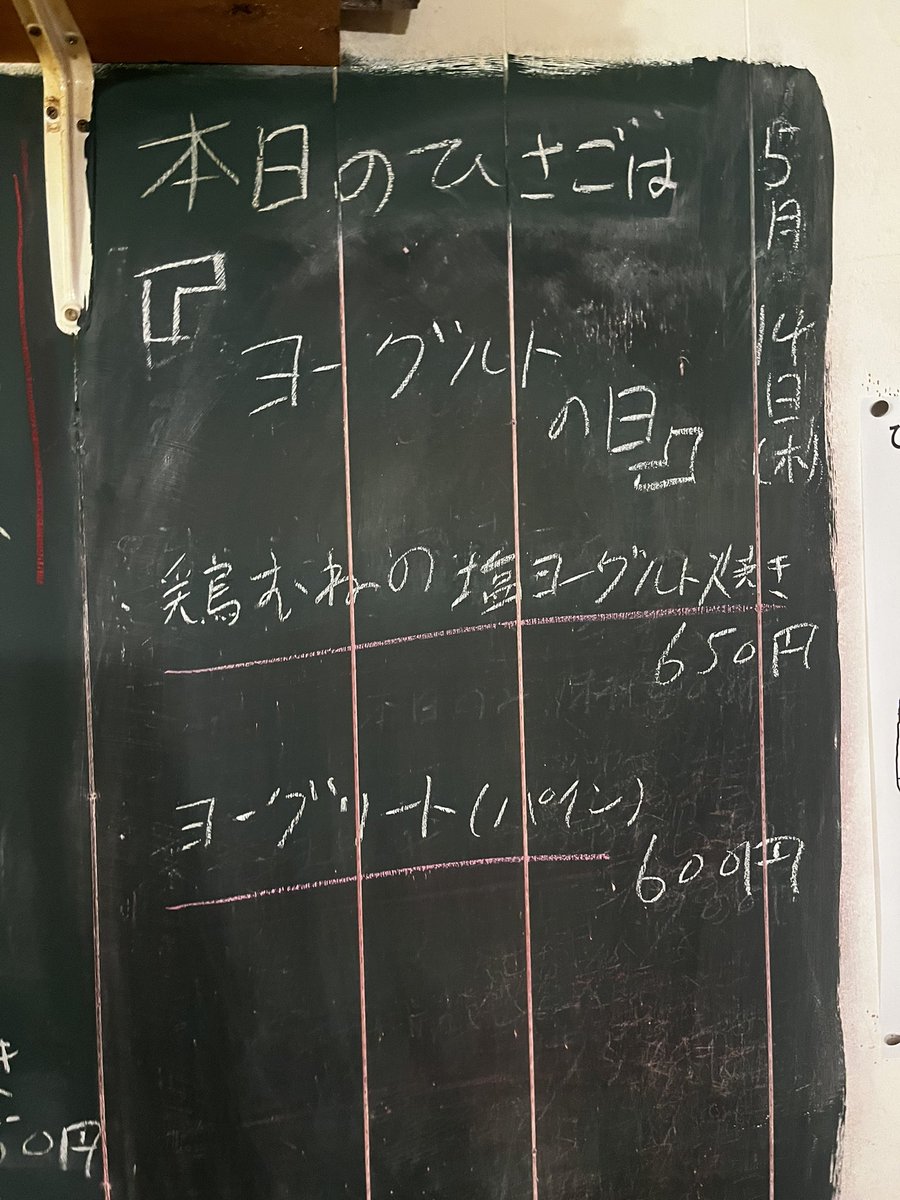 本日のひさごは
『ヨーグルト
の日』
5月14日(木)
・鶏むねの塩ヨーグルト焼き
650円
・ヨーグリート(パイン)
600円
50円